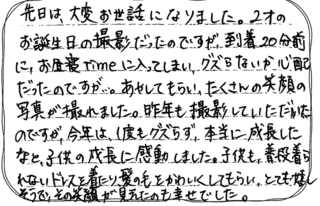 先日は、大変お世話になりました。2才の
お誕生日の撮影だったのですが、到着20分前
に、お昼寝timeに入ってしまい、グズらないか心配
だったのですが…。あやしてもらい、たくさんの笑顔の
写真が撮れました。昨年も撮影していただいた
のですが、今年は、1度もグズらず、本当に成長した
なと、子供の成長に感動しました。子供も、普段着ら
れないドレスを着たり、髪の毛をかわいくしてもらい、とても嬉し
そうで、その笑顔が見れたのも幸せでした。